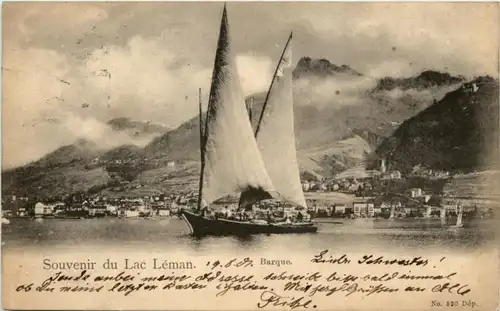 Souvenir du Lac Léman. 19.6.01. Barque. Liebe Schwester!
Sende anbei meine Adresse, schreibe bitte bald einmal
ob Du meine letzten Karten erhalten. Mit herzl. Grüßen an Alle
Fritz.
No. 520 Dép.